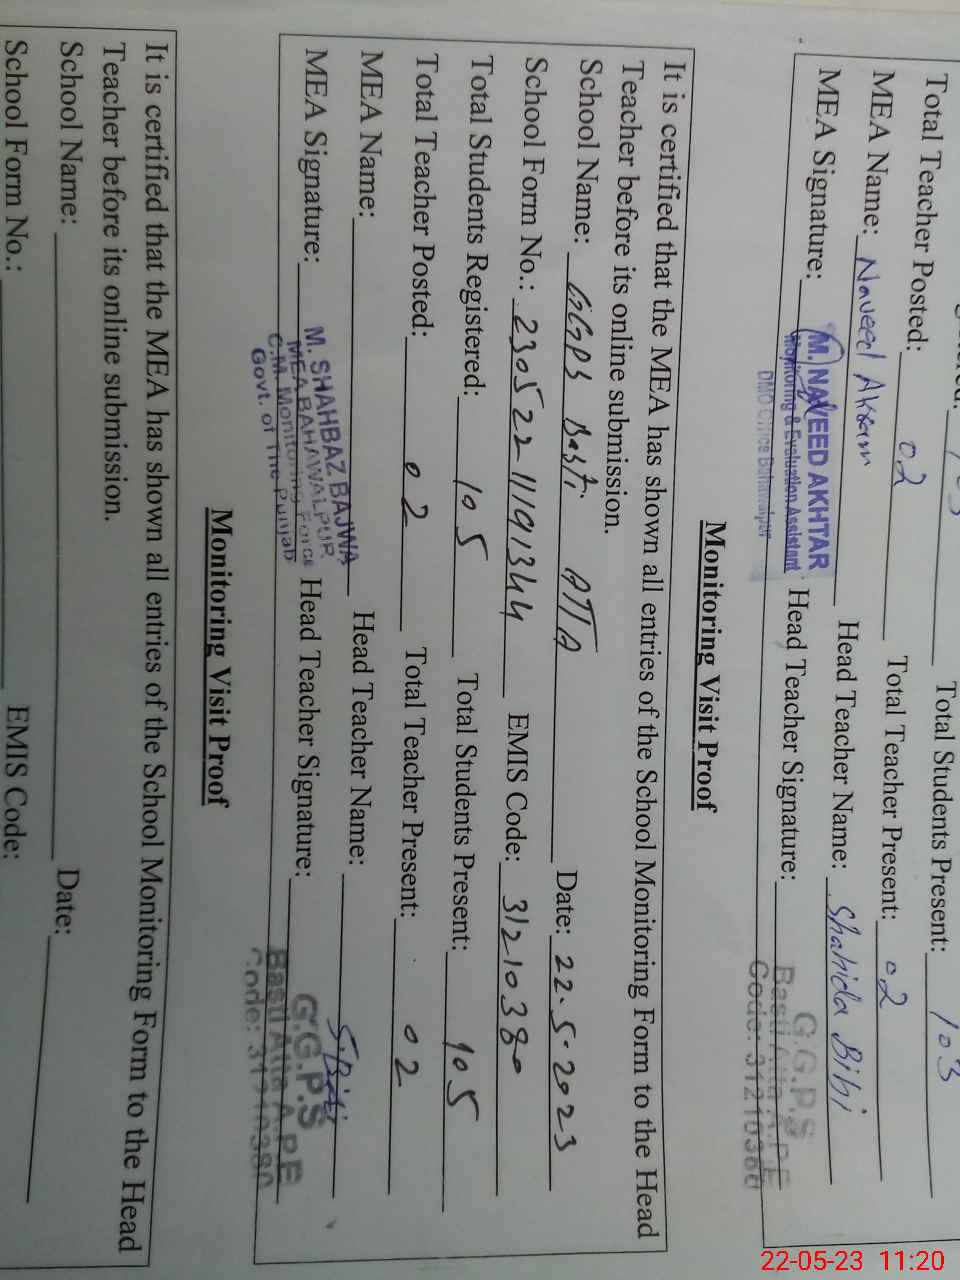 Total Students Present: 103
Total Teacher Posted: 02 Total Teacher Present: 02
MEA Name: Naveed Akram Head Teacher Name: Shahida Bibi
MEA Signature: M. NAVEED AKHTAR Head Teacher Signature: G.G.P.S
Monitoring & Evaluation Assistant Basti Atta A.P.E
DMO Office Bahawalpur Code: 31210380
Monitoring Visit Proof
It is certified that the MEA has shown all entries of the School Monitoring Form to the Head
Teacher before its online submission.
School Name: GGPS Basti ATTA Date: 22.5.2023
School Form No.: 230522111191344 EMIS Code: 31210380
Total Students Registered: 105 Total Students Present: 105
Total Teacher Posted: 02 Total Teacher Present: 02
MEA Name: Head Teacher Name: S.Bibi
MEA Signature: M. SHAHBAZ BAJWA Head Teacher Signature: G.G.P.S
MEA BAHAWALPUR Basti Atta A.P.E
C.M. Monitoring Force Code: 31210380
Govt. of The Punjab
Monitoring Visit Proof
It is certified that the MEA has shown all entries of the School Monitoring Form to the Head
Teacher before its online submission.
School Name: Date:
School Form No.: EMIS Code:
22-05-23 11:20